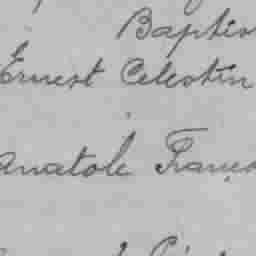 Baptis
Ernest Celestin
Anatole Franç